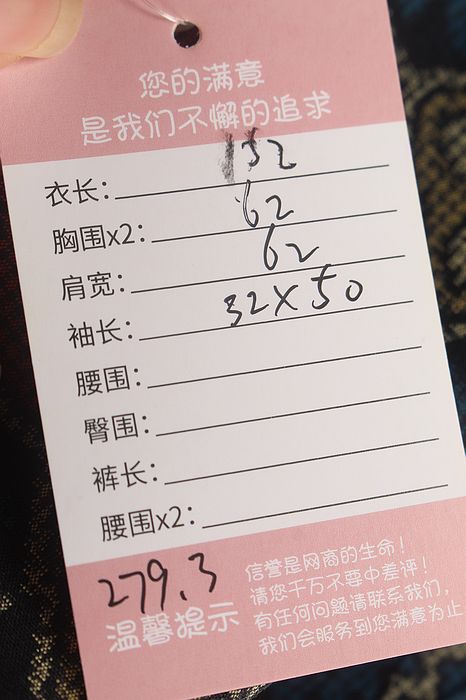 您的满意
是我们不懈的追求
衣长: 132
胸围x2: 62
肩宽: 62
袖长: 32×50
腰围:
臀围:
裤长:
腰围x2:
279.3
温馨提示
信誉是网商的生命!
请您千万不要中差评!
有任何问题请联系我们,
我们会服务到您满意为止